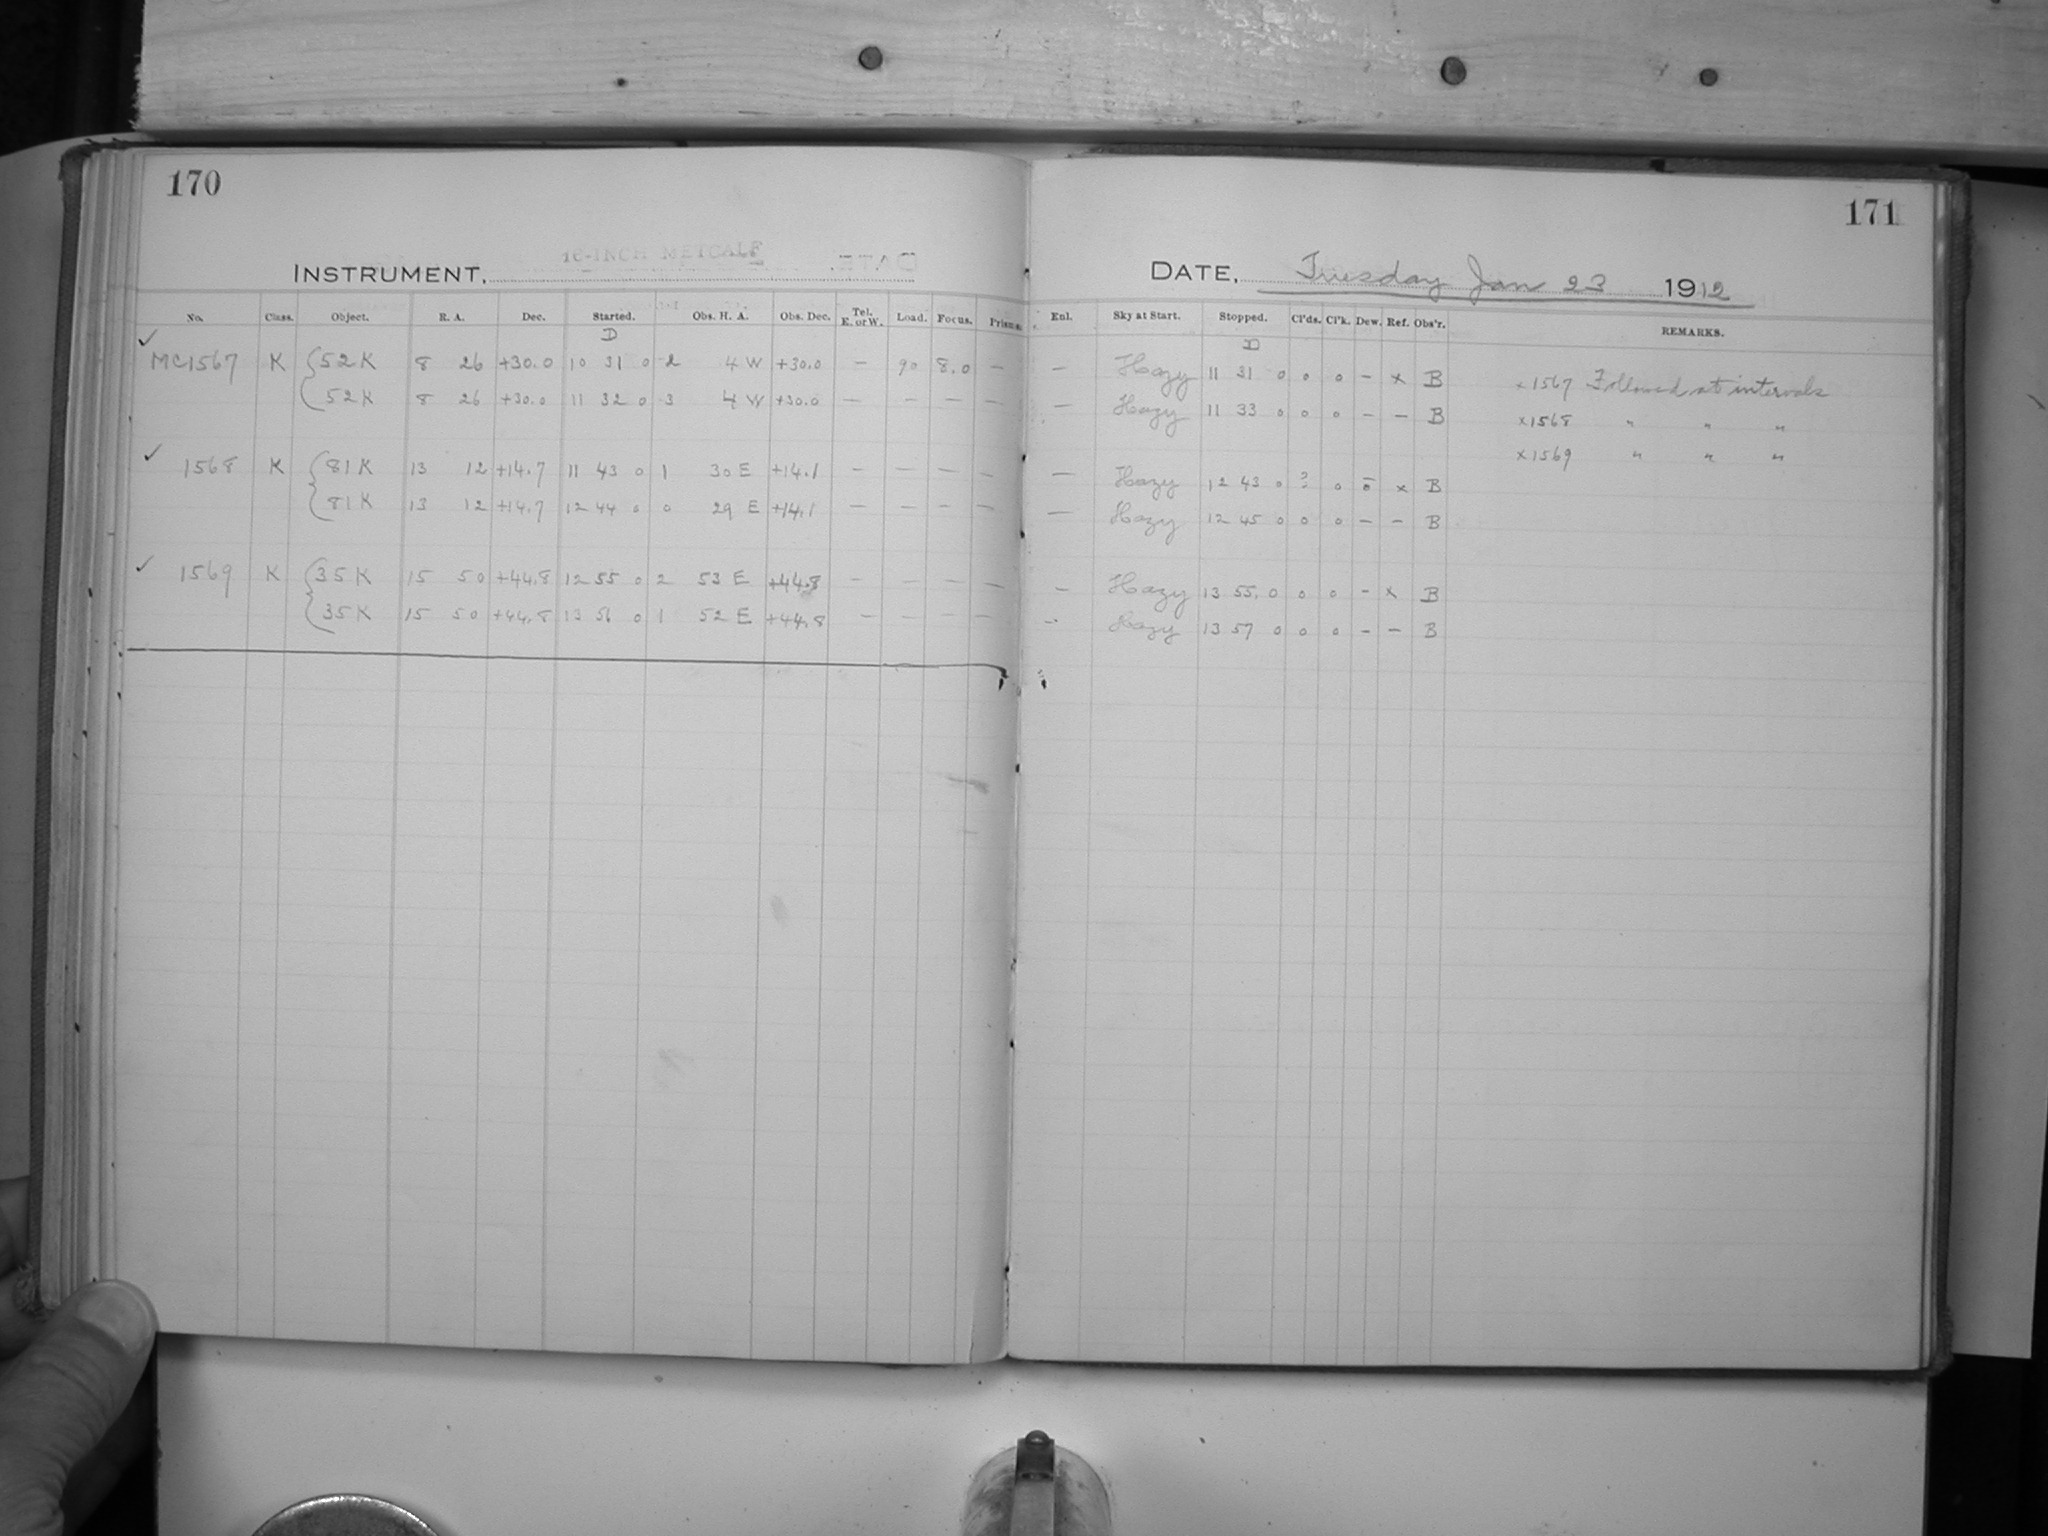 170
16-INCH METCALF
INSTRUMENT,
No. Class. Object. R. A. Dec. Started. Obs. H. A. Obs. Dec. Tel. E. or W. Load. Focus. Prisms.
D
✓ MC1567 K 52K 8 26 +30.0 10 31 0 2 4 W +30.0 — 90 8.0 —
52K 8 26 +30.0 11 32 0 3 4 W +30.0 — — — —
✓ 1568 K 81K 13 12 +14.7 11 43 0 1 30 E +14.1 — — — —
81K 13 12 +14.7 12 44 0 0 29 E +14.1 — — — —
✓ 1569 K 35K 15 50 +44.8 12 55 0 2 53 E +44.8 — — — —
35K 15 50 +44.8 13 56 0 1 52 E +44.8 — — — —
171
DATE, Tuesday Jan 23 1912
Enl. Sky at Start. Stopped. Cl'ds. Cl'k. Dew. Ref. Obs'r. REMARKS.
D
— Hazy 11 31 0 0 0 – x B x1567 Followed at intervals
— Hazy 11 33 0 0 0 – – B x1568 " " "
x1569 " " "
— Hazy 12 43 0 ? 0 0 x B
— Hazy 12 45 0 0 0 – – B
— Hazy 13 55.0 0 0 – x B
— Hazy 13 57 0 0 0 – – B